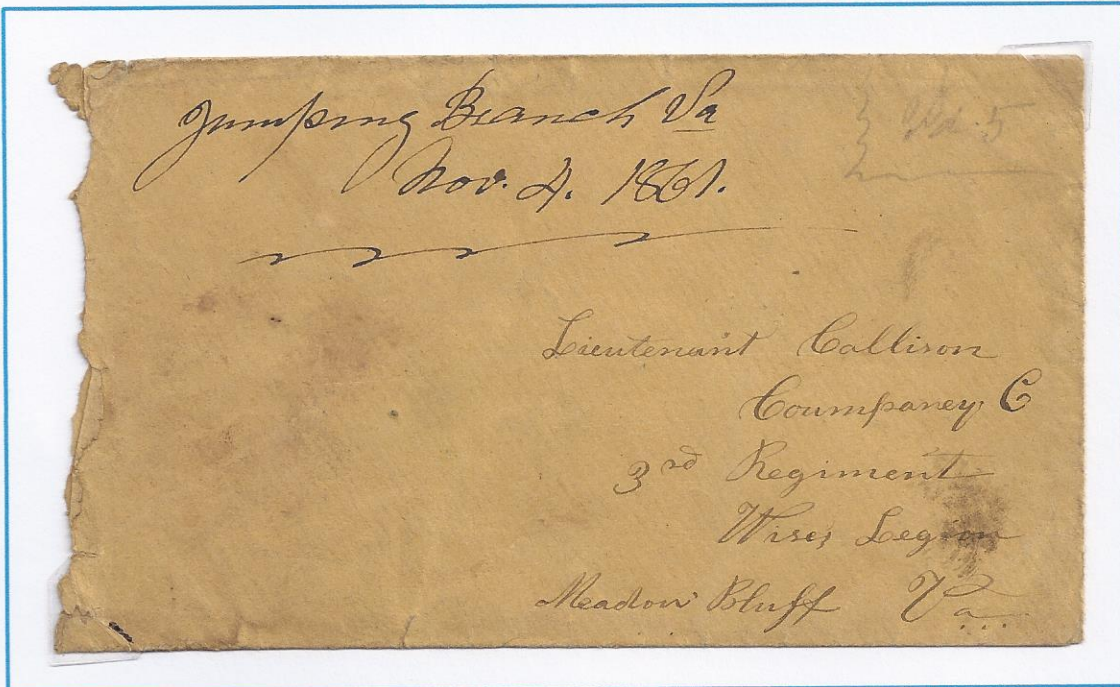 Jumping Branch Va
Nov. 4. 1861.
5
Lieutenant Callison
Coumpaney C
3rd Regiment
Wises Legion
Meadow Bluff Va